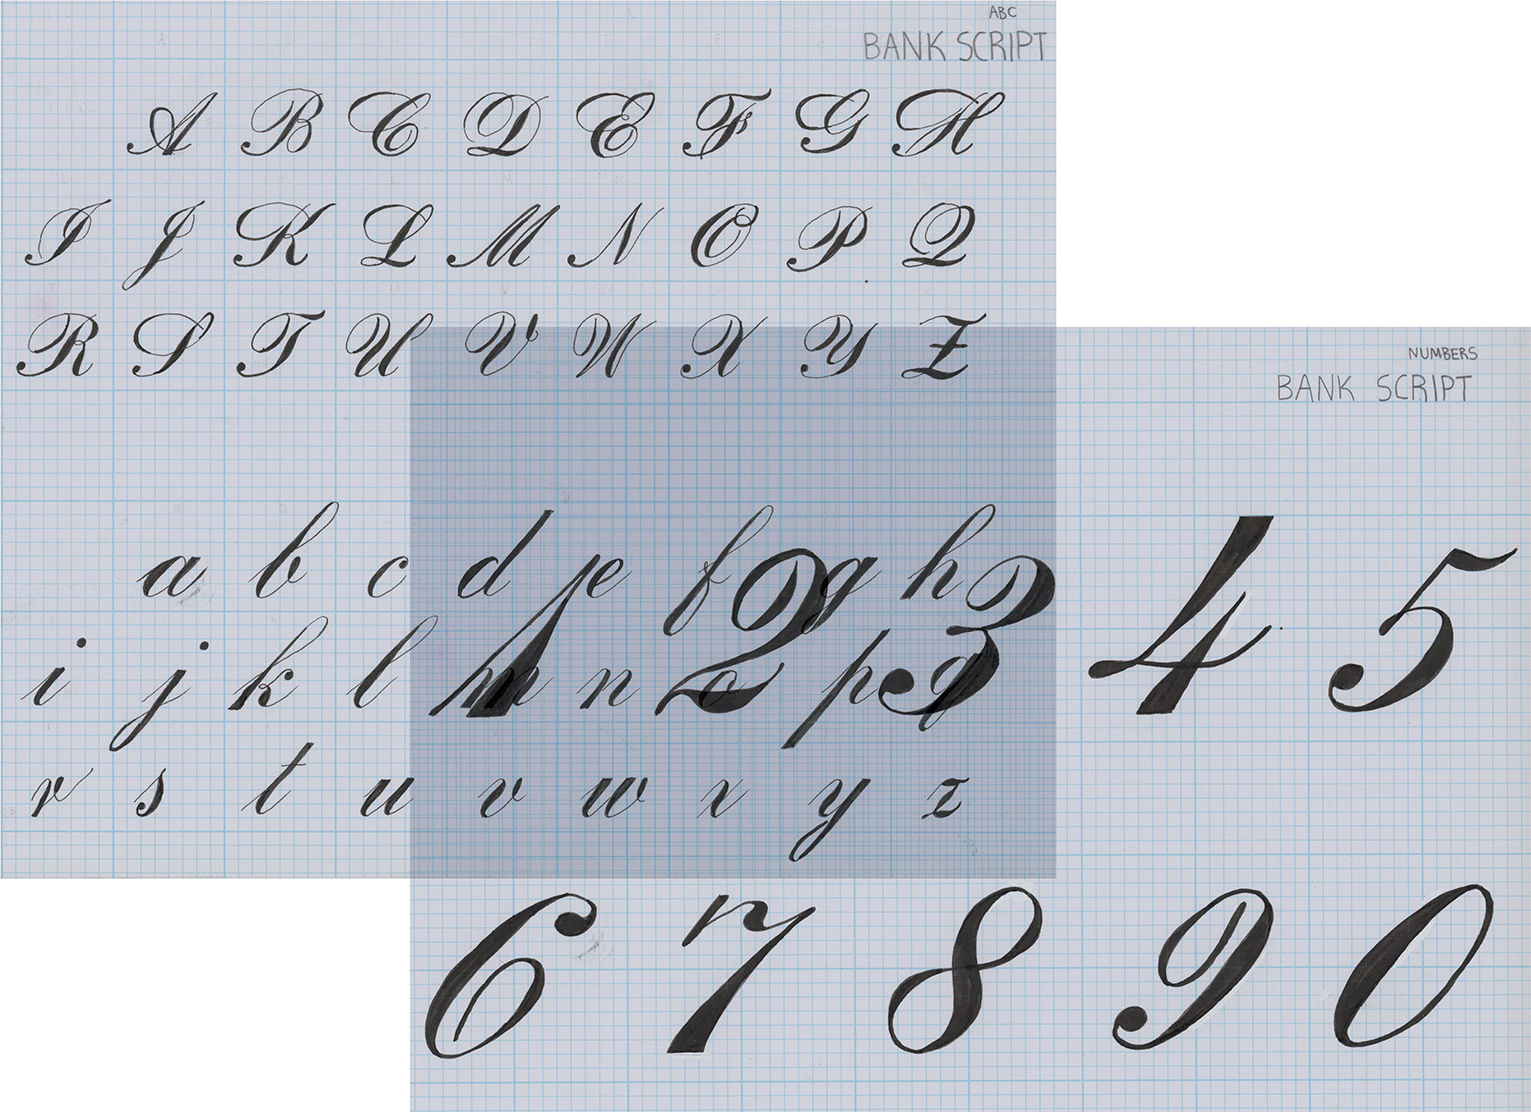 ABC
BANK SCRIPT
A B C D E F G H
I J K L M N O P Q
R S T U V W X Y Z
a b c d e f g h
i j k l m n o p q
r s t u v w x y z
NUMBERS
BANK SCRIPT
1 2 3 4 5
6 7 8 9 0